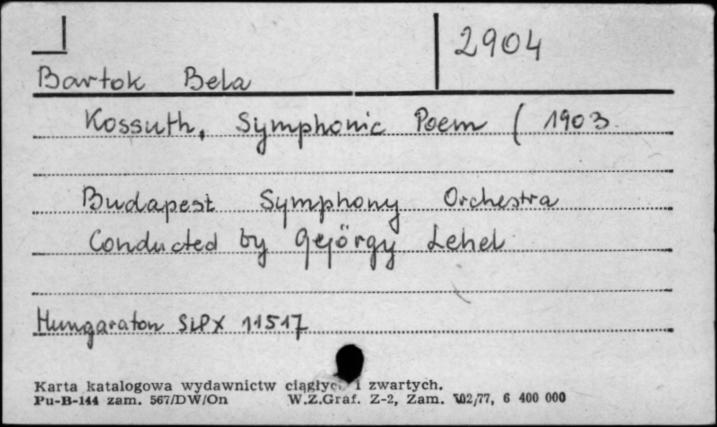 2904
Bartok Bela
Kossuth, Symphonic Poem ( 1903
Budapest Symphony Orchestra
Conducted by Gejörgy Lehel
Hungaraton SLPX 11517
Karta katalogowa wydawnictw ciągłyc i zwartych.
Pu-B-144 zam. 567/DW/On W.Z.Graf. Z-2, Zam. 702/77, 6 400 000